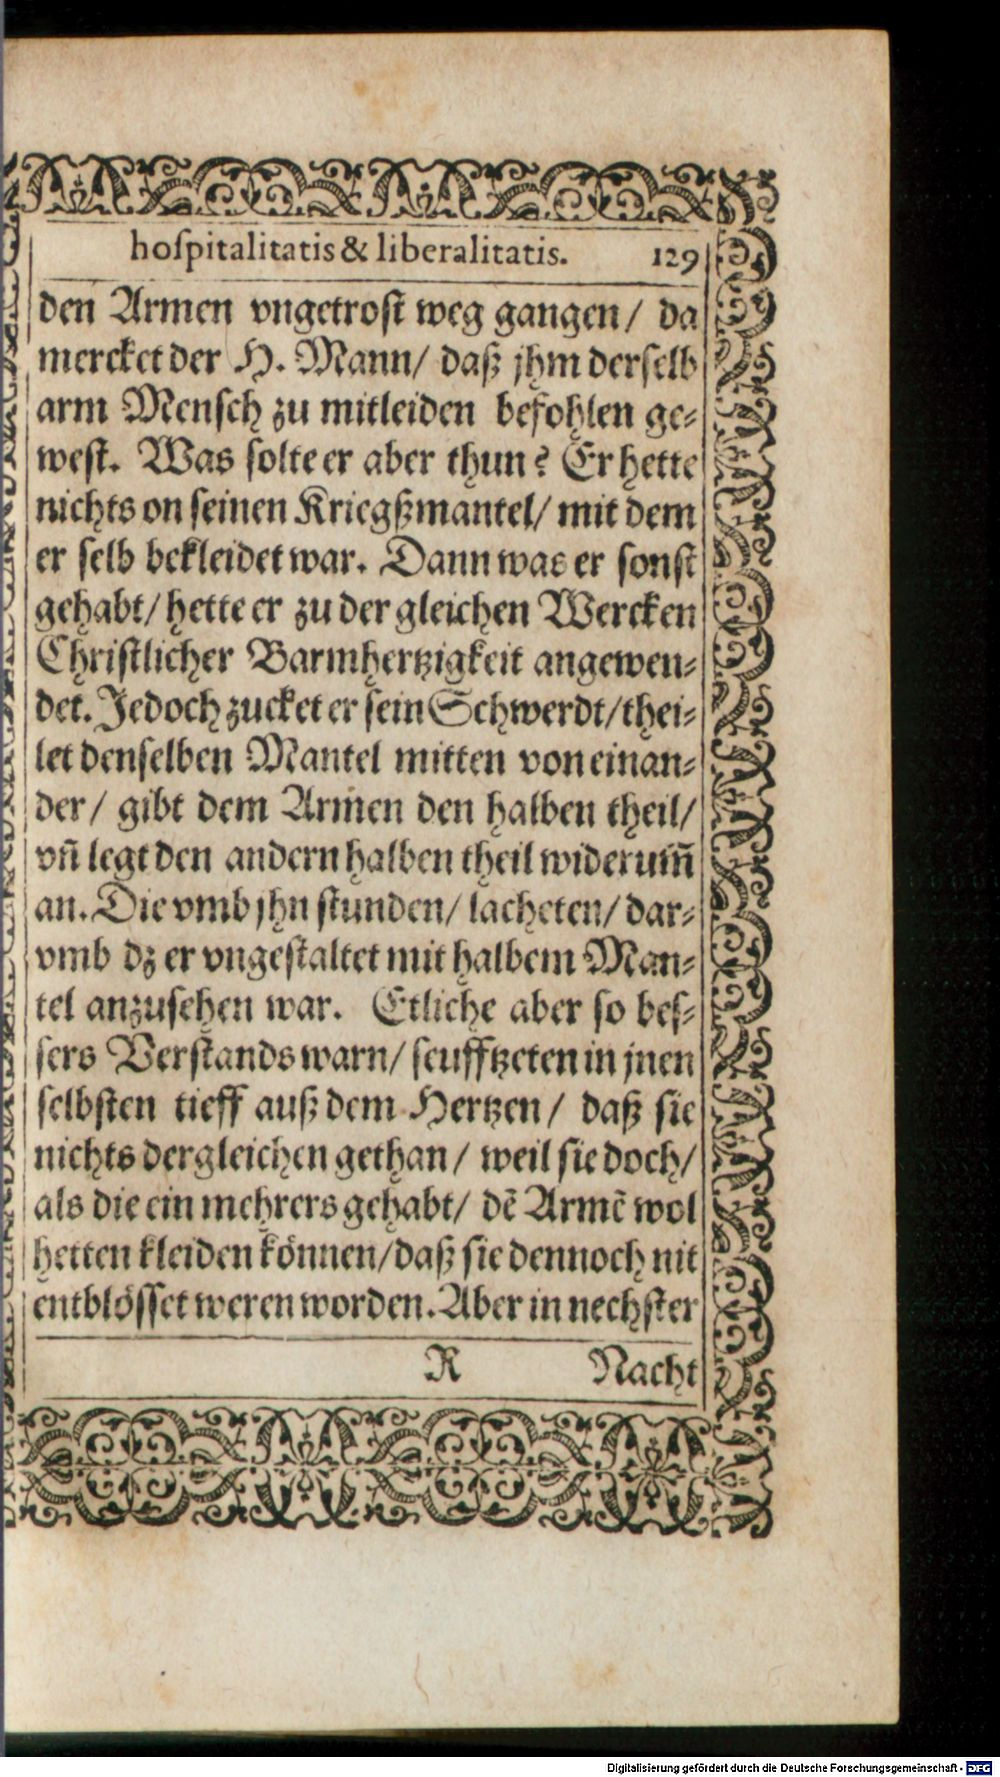 hoſpitalitatis & liberalitatis. 129
den Armen vngetroſt weg gangen/ da
mercket der H. Mann/ daß jhm derſelb
arm Menſch zu mitleiden befohlen ge-
weſt. Was ſolte er aber thun? Er hette
nichts on ſeinen Kriegßmantel/ mit dem
er ſelb bekleidet war. Dann was er ſonſt
gehabt/ hette er zu der gleichen Wercken
Chriſtlicher Barmhertzigkeit angewen-
det. Jedoch zucket er ſein Schwerdt/ thei-
let denſelben Mantel mitten von einan-
der/ gibt dem Armen den halben theil/
vñ legt den andern halben theil widerum̃
an. Die vmb jhn ſtunden/ lacheten/ dar-
vmb dz er vngeſtaltet mit halbem Man-
tel anzuſehen war. Etliche aber ſo beſ-
ſers Verſtands warn/ ſeufftzeten in jnen
ſelbſten tieff auß dem Hertzen/ daß ſie
nichts dergleichen gethan/ weil ſie doch/
als die ein mehrers gehabt/ dẽ Armẽ wol
hetten kleiden können/ daß ſie dennoch nit
entblöſſet weren worden. Aber in nechſter
R Nacht
Digitalisierung gefördert durch die Deutsche Forschungsgemeinschaft - DFG